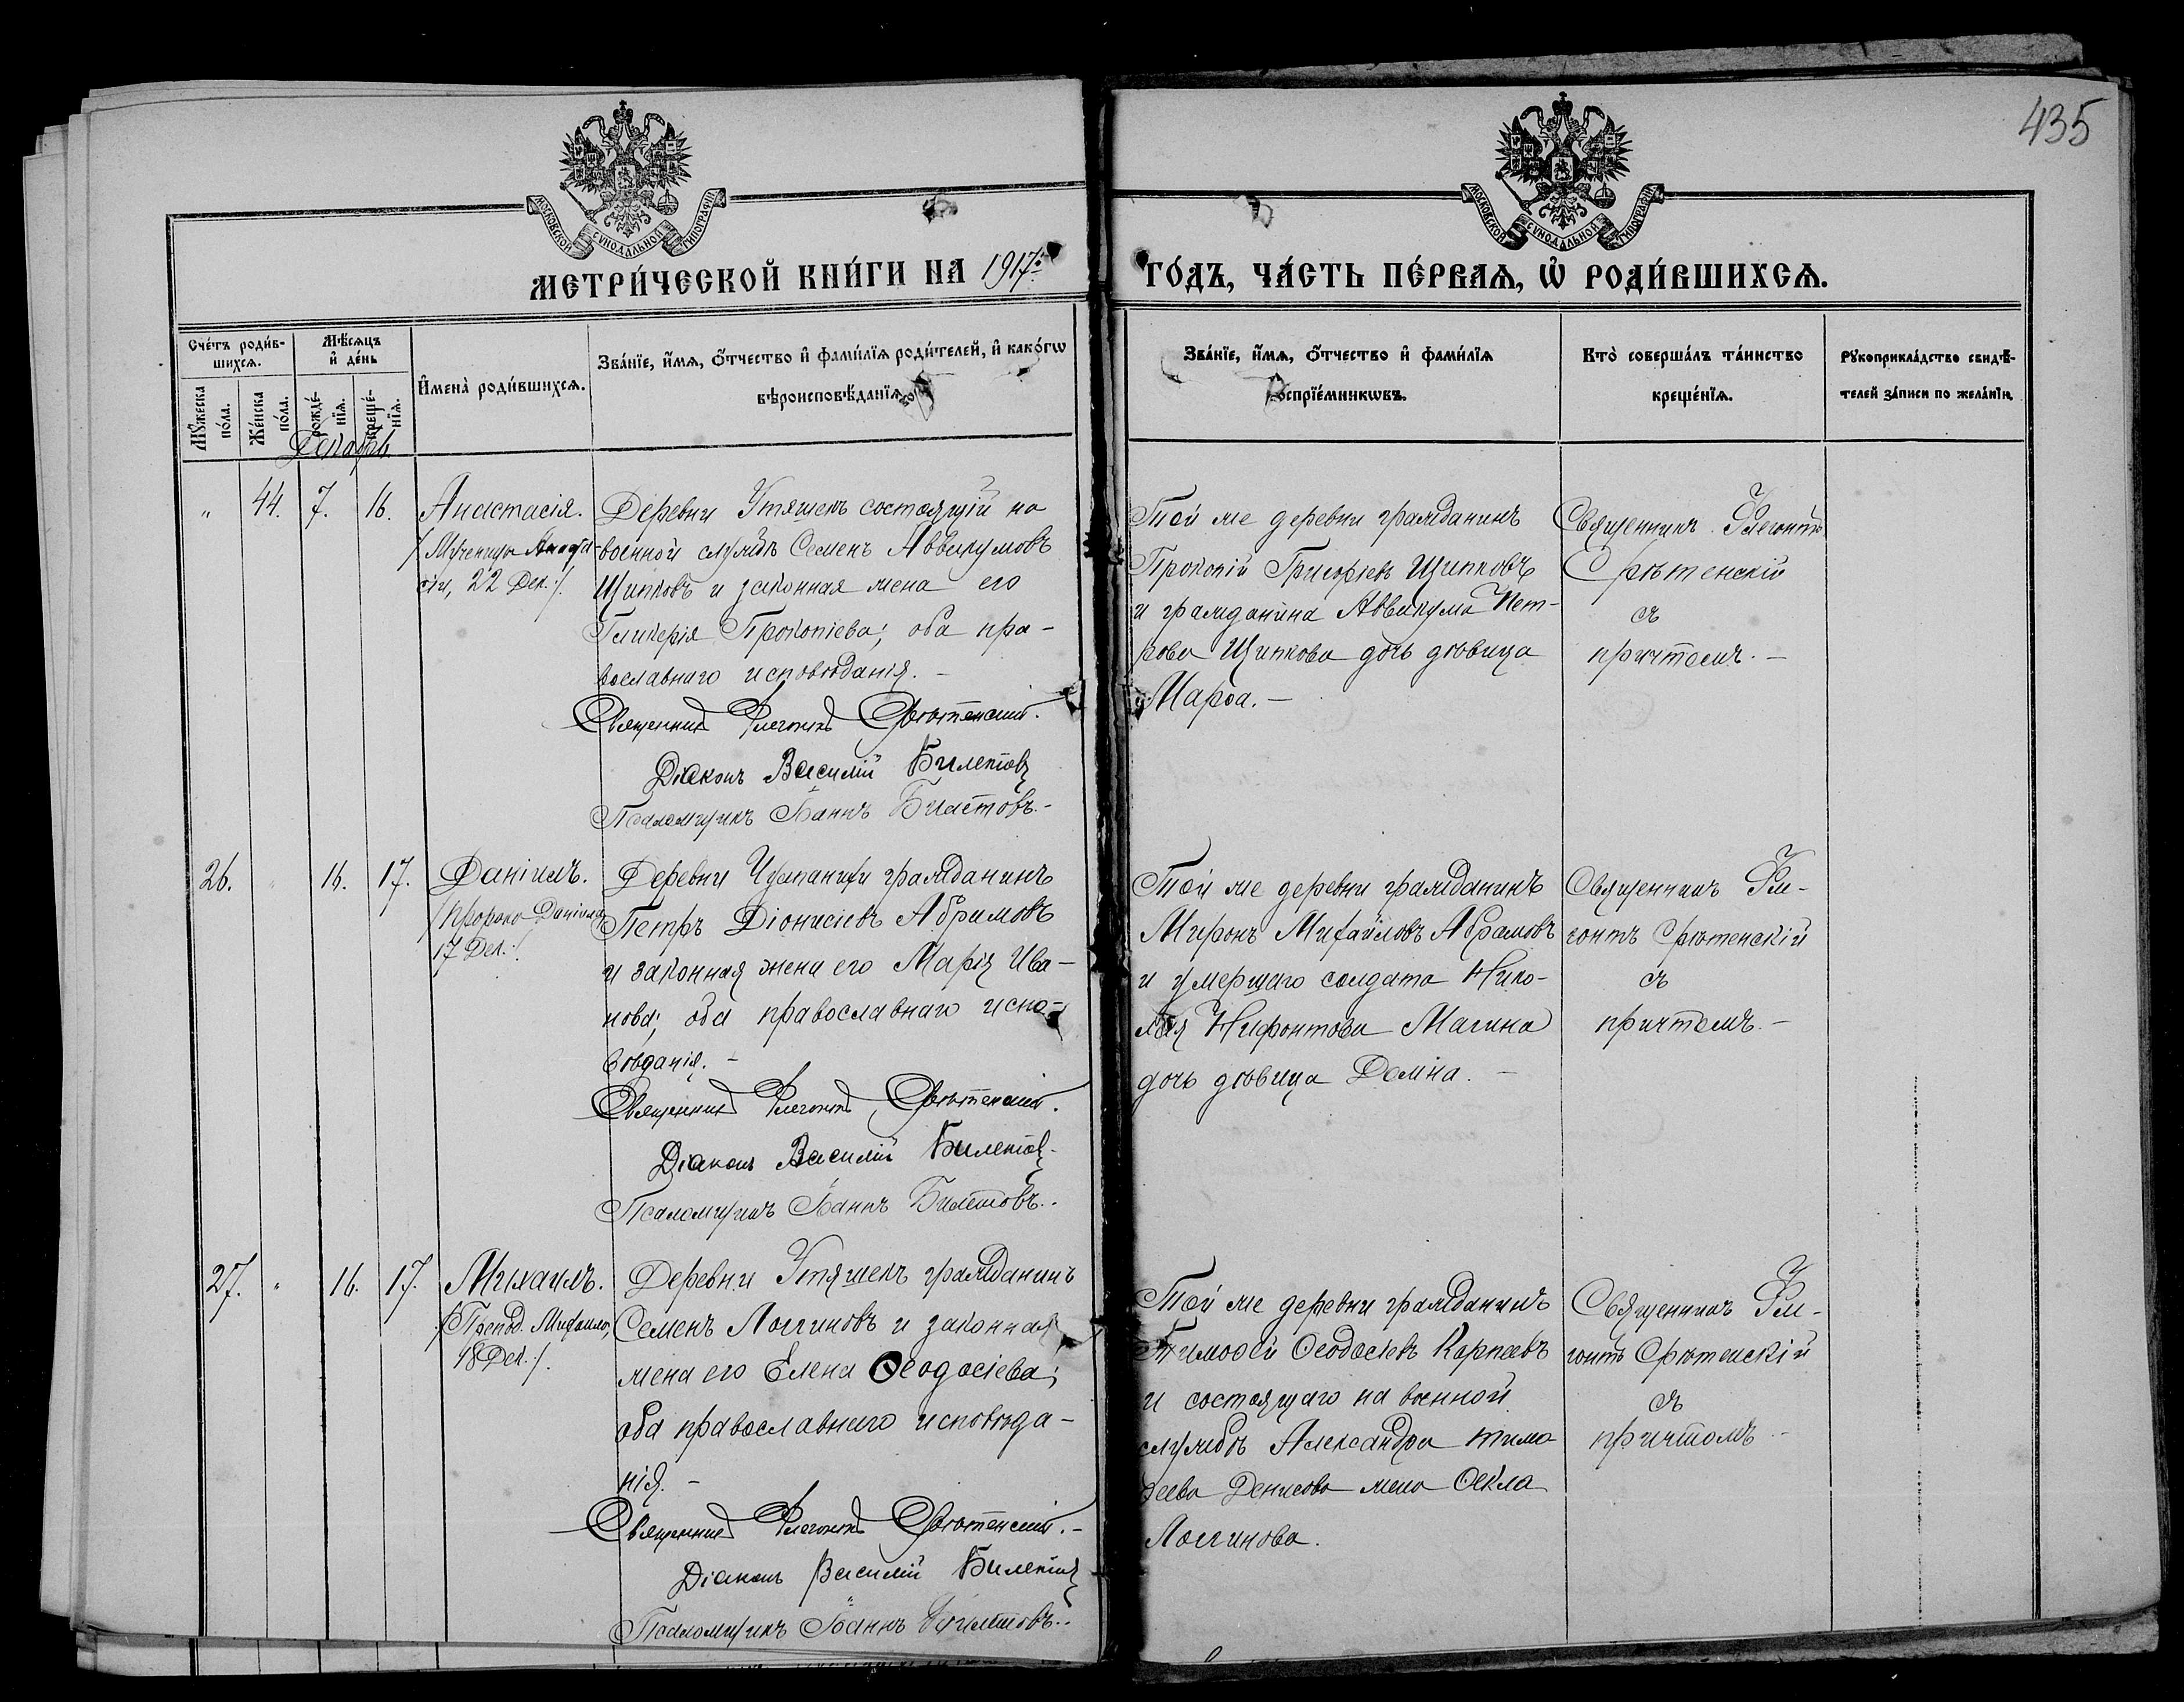 435
МОСКОВСКОЙ СѴНОДАЛЬНОЙ ТИПОГРАФІИ
МОСКОВСКОЙ СѴНОДАЛЬНОЙ ТИПОГРАФІИ
МЕТРИ́ЧЕСКОЙ КНИ́ГИ НА 1917:
ГО́ДЪ, ЧА́СТЬ ПЕ́РВАѦ, Ѡ҆ РОДИ́ВШИХСѦ.
Сче́тъ роди́в-
шихсѧ.
Мꙋ́жеска
по́ла.
Же́нска
по́ла.
Мѣ́сѧцъ
и҆ де́нь
рожде́-
нїѧ.
креще́-
нїѧ.
И҆мена̀ роди́вшихсѧ.
Зва́нїе, и҆́мѧ, ѻ҆́тчество и҆ фами́лїѧ роди́телей, и҆ како́гѡ
вѣроисповѣ́данїѧ.
Зва́нїе, и҆́мѧ, ѻ҆́тчество и҆ фами́лїѧ
воспрїе́мникѡвъ.
Кто̀ соверша́лъ та́инство
креще́нїѧ.
Рꙋкоприкла́дство свидѣ́-
телей за́писи по жела́нїю.
Декабрь.
" 44. 7. 16. Анастасія.
/Мученицы Анаста-
сіи, 22 Дек./.
Деревни Утяшекъ состоящій на
военной службѣ Семенъ Аввакумовъ
Щипковъ и законная жена его
Гликерія Прокопіева; оба пра-
вославнаго исповѣданія. -
Священникъ Флегонтъ Срѣтенскій.
Діаконъ Василій Билетовъ
Псаломщикъ Іоаннъ Билетовъ.-
Той же деревни гражданинъ
Прокопій Григорьевъ Щипковъ
и гражданина Аввакума Пет-
рова Щипкова дочь дѣвица
Марѳа. -
Священникъ Флегонтъ
Срѣтенскій
съ
причтомъ. -
26. " 16. 17. Даніилъ.
/Пророка Даніила
17 Дек./.
Деревни гражданинъ
Петръ Діонисіевъ Абрамовъ
и законная жена его Марія Ива-
нова; оба православнаго испо-
вѣданія. -
Священникъ Флегонтъ Срѣтенскій.
Діаконъ Василій Билетовъ
Псаломщикъ Іоаннъ Билетовъ.-
Той же деревни гражданинъ
Миронъ Михайловъ Абрамовъ
и умершаго солдата Нико-
лая Нифонтова Магина
дочь дѣвица Домна. -
Священникъ Фле-
гонтъ Срѣтенскій
съ
причтомъ. -
27. " 16. 17. Михаилъ.
/Препод. Михаила,
18 Дек./.
Деревни Утяшекъ гражданинъ
Семенъ Логгиновъ и законная
жена его Елена Ѳеодосіева;
оба православнаго исповѣда-
нія. -
Священникъ Флегонтъ Срѣтенскій. -
Діаконъ Василій Билетовъ
Псаломщикъ Іоаннъ Билетовъ.-
Той же деревни гражданинъ
Тимоѳей Ѳеодосіевъ Карпеевъ
и состоящаго на военной
службѣ Александра Тимо
ѳеева Денисова жена Ѳекла
Логгинова.
Священникъ Фле-
гонтъ Срѣтенскій
съ
причтомъ -